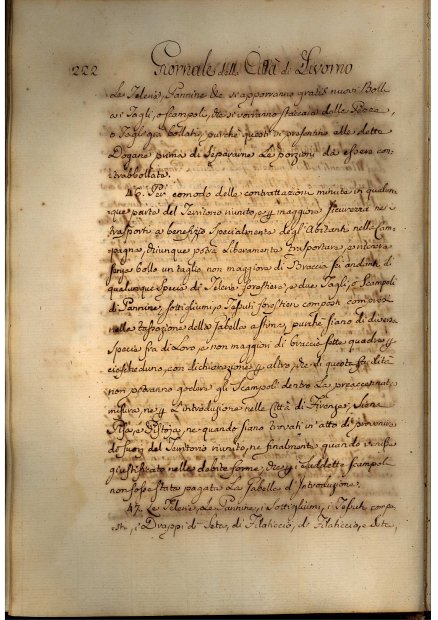 222 Giornale della Città di Livorno
Le Telerie, Pannine che si apporranno gratis nuovi Boll
a i Tagli, o Scampoli, che si vorranno staccare dalle Pezze,
o Tagli già bollati, purchè questi si presentino alle dette
Dogane prima di separarne le porzioni da essere con
trabbollate.
46. Per comodo delle contrattazioni minute in qualun
que parte del Territorio riunito, e maggiore sicurezza nei
trasporti a benefizio specialmente degl'Abitanti nella Cam
pagna, chiunque potrà liberamente trasportare, e ritenere
senza bollo un taglio non maggiore di Braccia sei andanti di
qualunque specie di Telerie forestiere, e due Tagli, o Scampoli
di Pannine, sottigliumi, o Tessuti forestieri composti compresi
nella tassazione delle Gabelle a stima, purchè siano di diversa
specie fra di loro, e non maggiori di braccia sette quadre
ciascheduno, con dichiarazione altro, che di questa facilità
non potranno godere gli Scampoli dentro la preaccennata
misura, ne l'introduzione nelle Città di Firenze, Siena
Pisa, e Pistoja, ne quando siano trovati in atto di provenire
da fuori del Territorio riunito, ne finalmente quando venisse
giustificato nelle debite forme, che suddette Scampoli
non fosse stata pagata la Gabella d'Introduzione.
47. Le Telerie, le Pannine, i Sottigliumi, i Tessuti compo
sti, i Drappi di Seta, di Filaticcio, di Filaticcio, e Seta,